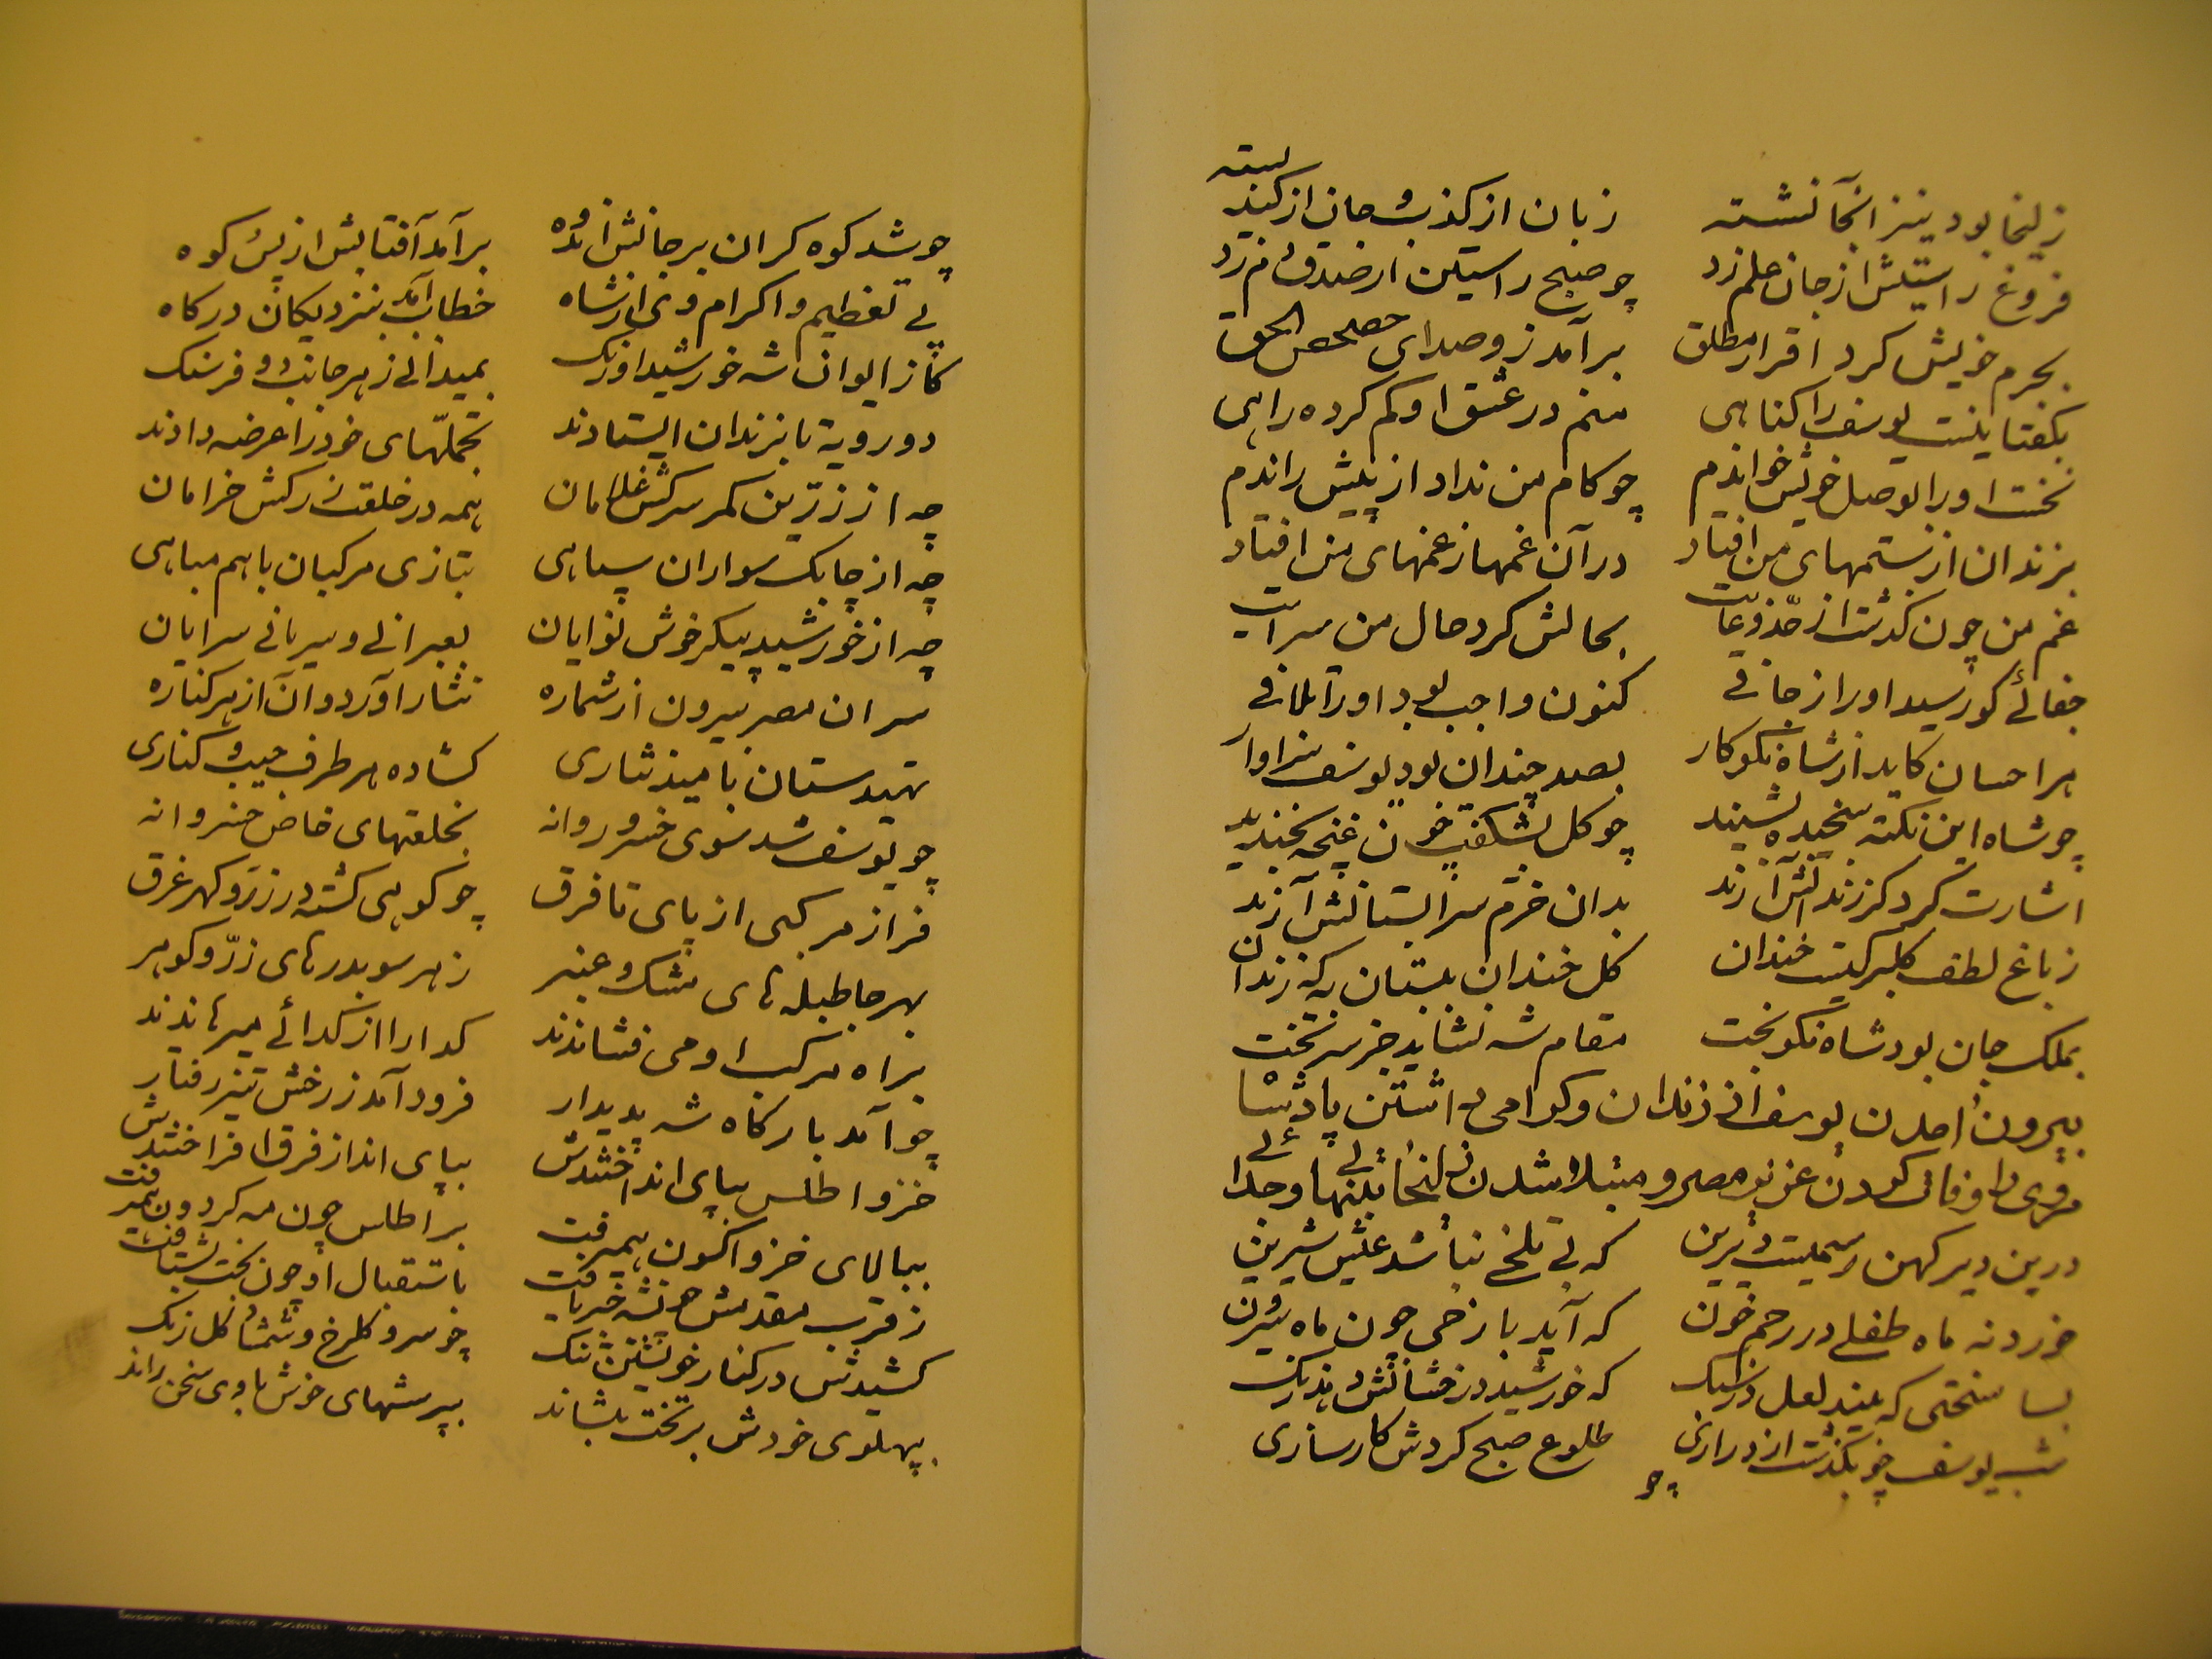 زلیخا بود نیز آنجا نشسته زبان از کذب و جان از کید رسته
فروغ راستیش از جان علم زد چو صبح راستین از صدق دم زد
بجرم خویش کرد اقرار مطلق برآمد زو صدای حصحص الحق
بکفتا نیست یوسف را کناهی منم در عشق او کم کرده راهی
نخست او را بوصل خویش خواندم چو کام من نداد از پیش راندم
بزندان از ستمهای من افتاد در آن غمها ز غمهای من افتاد
غم من چون کذشت از حد و غایت بحالش کرد حال من سرایت
جفائے کو رسید او را ز جافی کنون واجب بود او را تلافی
هر احسان کاید از شاه نکوکار بصد چندان بود یوسف سزاوار
چو شاه این نکته سنجیده بشنید چو کل بشکفت چون غنچه بخندید
اشارت کرد کز زندانش آرند بدان خرم سرابستانش آرند
ز باغ لطف کلبرکیست خندان کل خندان بستان به که زندان
بملک جان بود شاه نکوبخت مقام شه نشاید جز سر تخت
بیرون آمدن یوسف از زندان و کرامی داشتن پادشاه
مر وی را و وفات کردن عزیز مصر و مبتلا شدن زلیخا به تنهائی و جدائی
درین دیر کهن رسمیست دیرین که بی تلخی نباشد عیش شیرین
خورد نه ماه طفلے در رحم خون که آید با رخی چون ماه بیرون
بسا سختی که بیند لعل در سنک که خورشید درخشانش دهد رنک
شب یوسف چو بکذشت از درازی طلوع صبح کردش کارسازی
چو
چو شد کوه کران بر جانش اندوه برآمد آفتابش از پس کوه
پے تعظیم و اکرام وی از شاه خطاب آمد بنزدیکان درکاه
کز ایوان شه خورشید اورنک بمیدانے ز هر جانب دو فرسنک
دو رویه تا بزندان ایستادند تجملهای خود را عرضه دادند
چه از زرین کمر سرکش غلامان همه در خلعت زرکش خرامان
چه از چابک سواران سپاهی بتازی مرکبان باهم مباهی
چه از خورشید پیکر خوش نوایان بعبرانے و سریانی سرایان
سران مصر بیرون از شماره نثار آور دوان از هر کناره
تهیدستان بامید نثاری کشاده هر طرف جیب و کناری
چو یوسف شد سوی خسرو روانه بخلعتهای خاص خسروانه
فراز مرکبی از پای تا فرق چو کوهی کشته در زر و کهر غرق
بهر جا طبله های مشک و عنبر ز هر سو بدره های زر و کوهر
براه مرکب او می فشاندند کدا را از کدائے میرهاندند
چو آمد بارکاه شه پدیدار فرود آمد ز رخش تیز رفتار
خز و اطلس بپای انداختندش بپای انداز فرق افراختندش
ببالای خز و اکسون همیرفت بر اطلس چون مه کردون همیرفت
ز قرب مقدمش چون شه خبر یافت باستقبال او چون بخت بشتافت
کشیدش در کنار خویشتن تنک چو سرو کلرخ و شمشاد کل رنک
پهلوی خودش بر تخت بنشاند بپرسشهای خوش با وی سخن راند